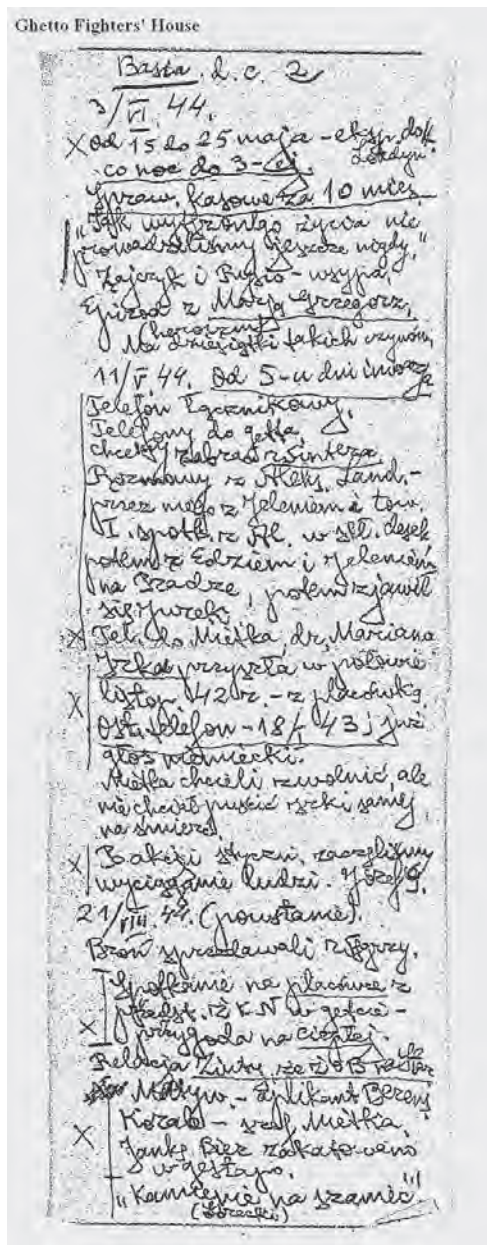 Ghetto Fighters' House
Basta. d. c. 2
3/VI. 44.
Od 15 do 25 maja – eksp. do
co noc do 3-ej
Spraw. kasowe za 10 mies.
"Tak wytrwnego życia nie
prowadziliśmy jeszcze nigdy."
Zajczyk i – wsypa.
Epizod z Marją Grzegorz,
Ma dziesiątki takich czynów,
11/V. 44. Od 5-u dni inwazja
Telefon łącznikowy,
Telefony do getta,
chcetny zabrać
Rozmowy z Aleks. Land. –
przez niego z Jeleniem i tow.
I. spotk. z Al. w skł. desek
potem z Edziem i Jeleniem
na , potem zjawił
się Jurek,
Tel. do Mietka, dr. Mariana
Irka przyszła w połowie
listop. 42 r. – z placówką.
Ost. telefon – 18/ 43 j już
głos niemiecki.
Mietka chcieli zwolnić, ale
nie chciał puścić samej
na śmierć.
Po akcji styczn. zaczęliśmy
wyciąganie ludzi. Józef 9.
21/VIII. 44. (powstanie).
Broń sprzedawali
Spotkanie na placówce z
przedst. Ż K N w getcie –
przygoda na ciepłej.
Relacja Ziuty ze Ż O B
– aplikant Berenś
Kozak – szef Mietka,
Jankę Bier zakatowano
w gestapo.
"Kamienie na szaniec"!!!